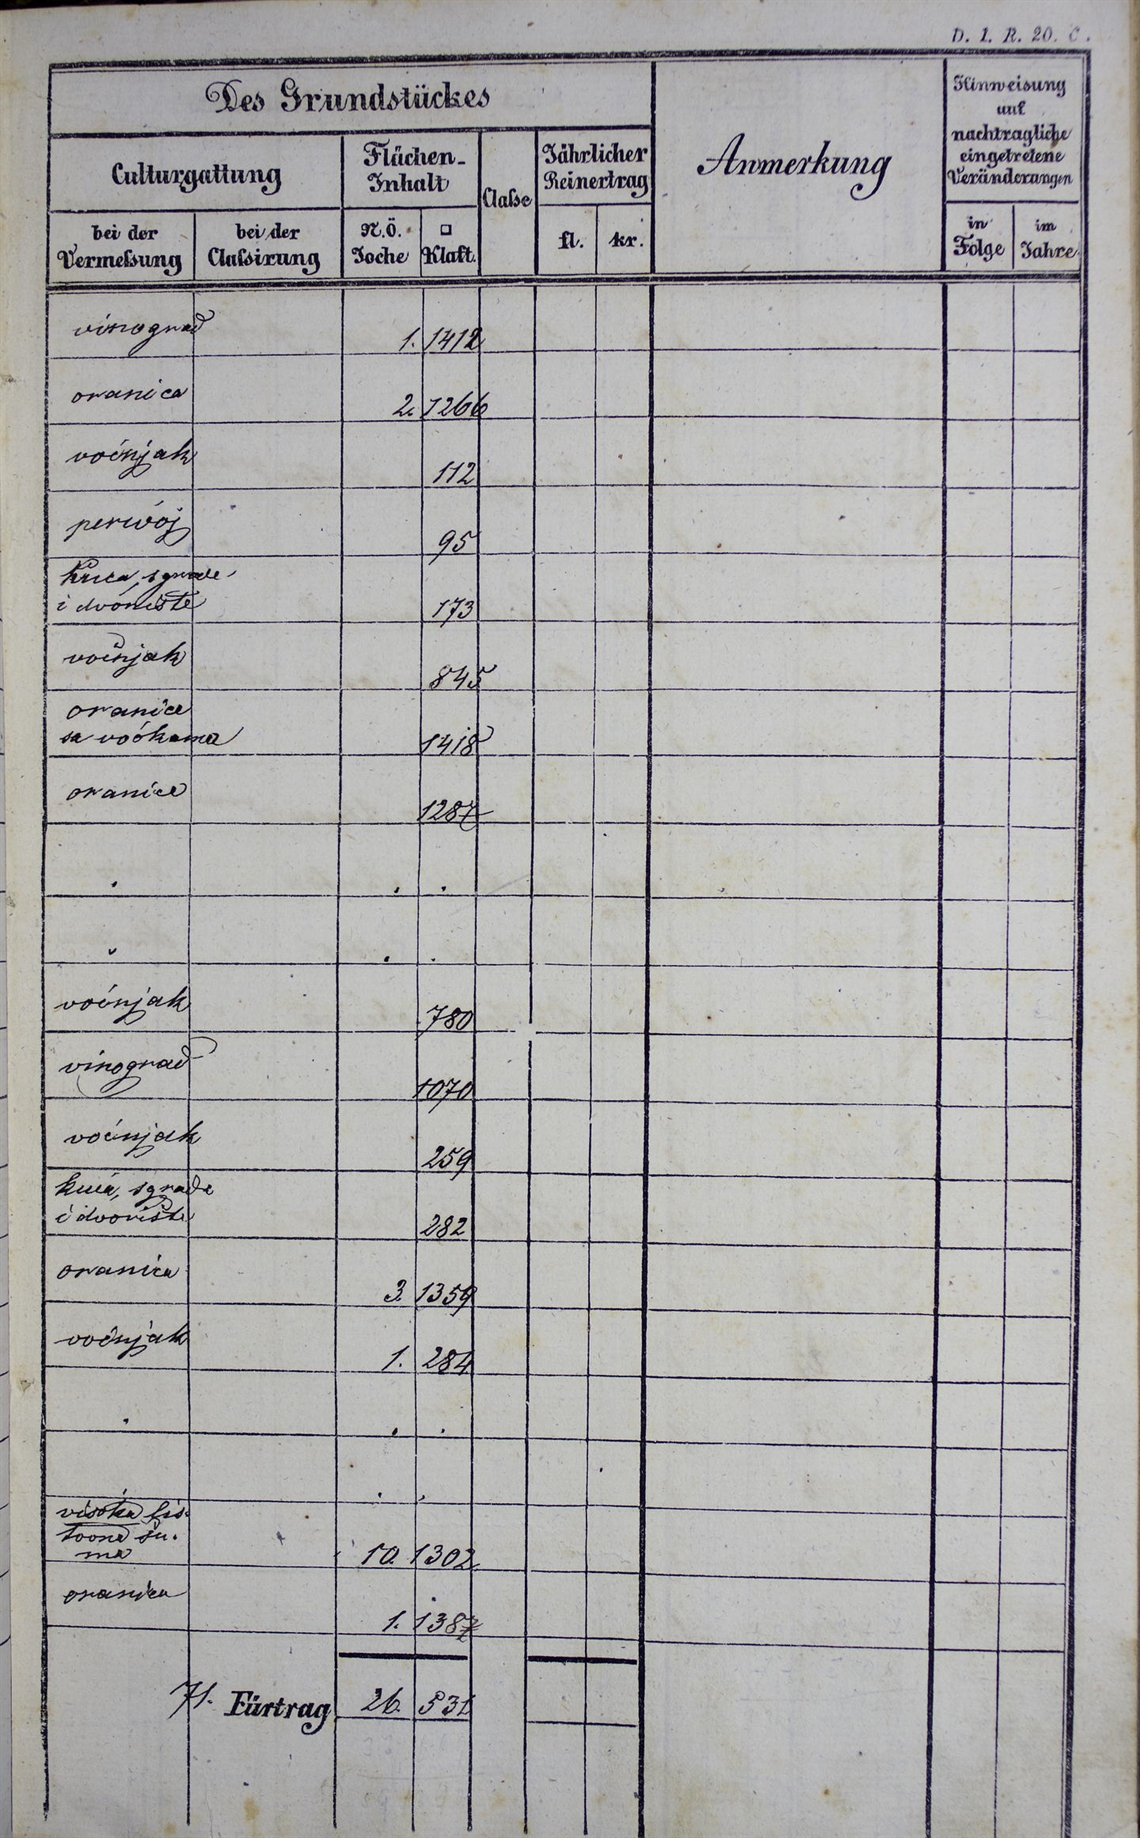 D. 1. R. 20. C.
Des Grundstückes
Anmerkung
Hinweisung
auf
nachtragliche
eingetretene
Veränderungen
Culturgattung
Flächen-
Inhalt
Classe
Jährlicher
Reinertrag
bei der
Vermessung
bei der
Classirung
N.Ö.
Joche
□
Klaft.
fl.
kr.
in
Folge
im
Jahre
vinograd
1. 1412
oranica
2. 1266
voćnjak
112
perivoj
95
kuca, sgrade
i dvorište
173
voćnjak
845
oranica
sa voćkama
1418
oranica
1287
voćnjak
780
vinograd
1070
voćnjak
259
kuća, sgrade
i dvorište
282
oranica
3. 1359
voćnjak
1. 284
visoka lis-
šu-
ma
10. 1302
oranica
1. 1387
71. Fürtrag 26. 531